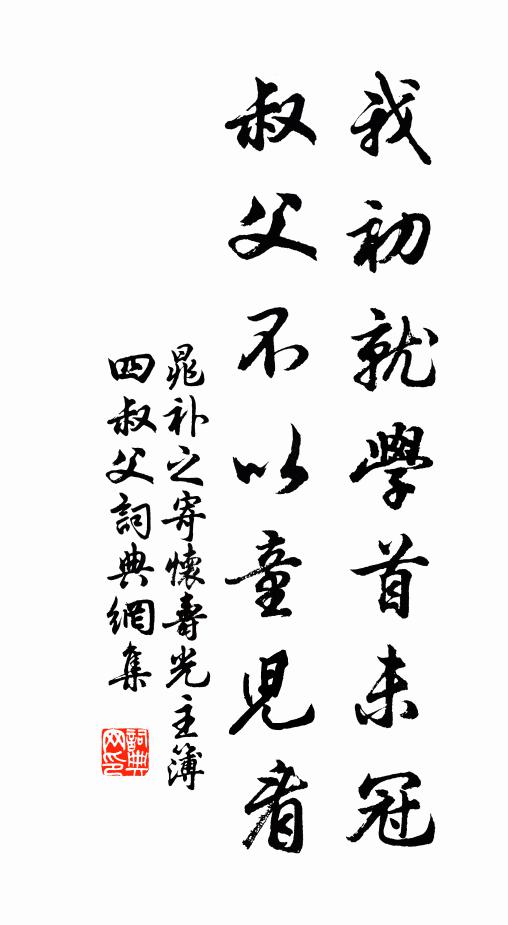 我初就學首未冠
叔父不以童兒看
晁补之寄懷壽光主簿
四叔父詞典網集
詞典
网印